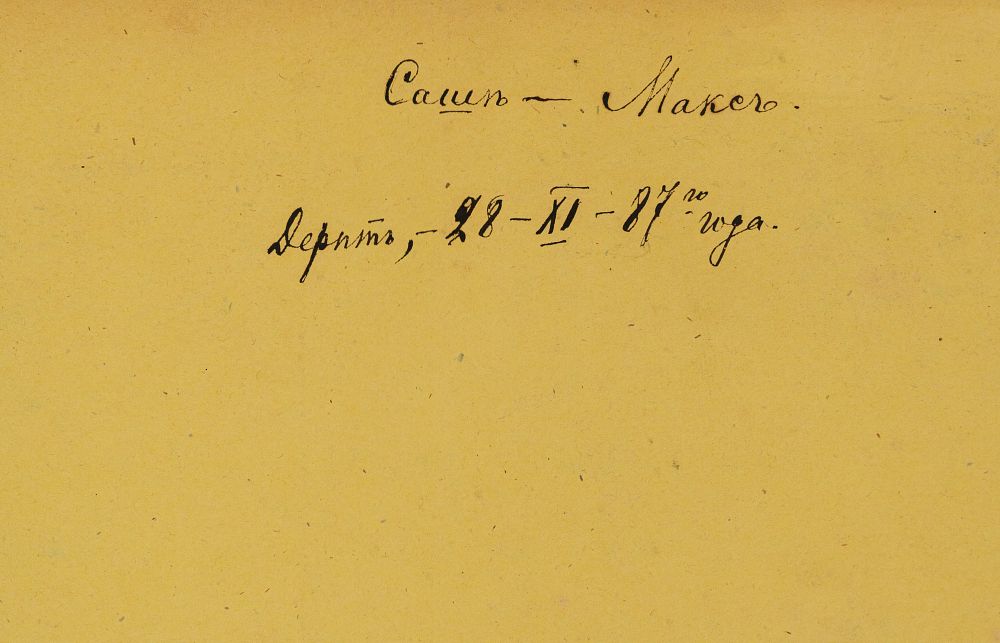 Сашѣ — Максъ.
Дерптъ, - 28 - XI - 87го года.